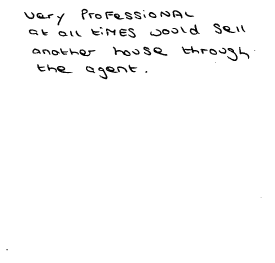 very PROFESSIONAL
at all tiMES would sell
another house through
the agent.